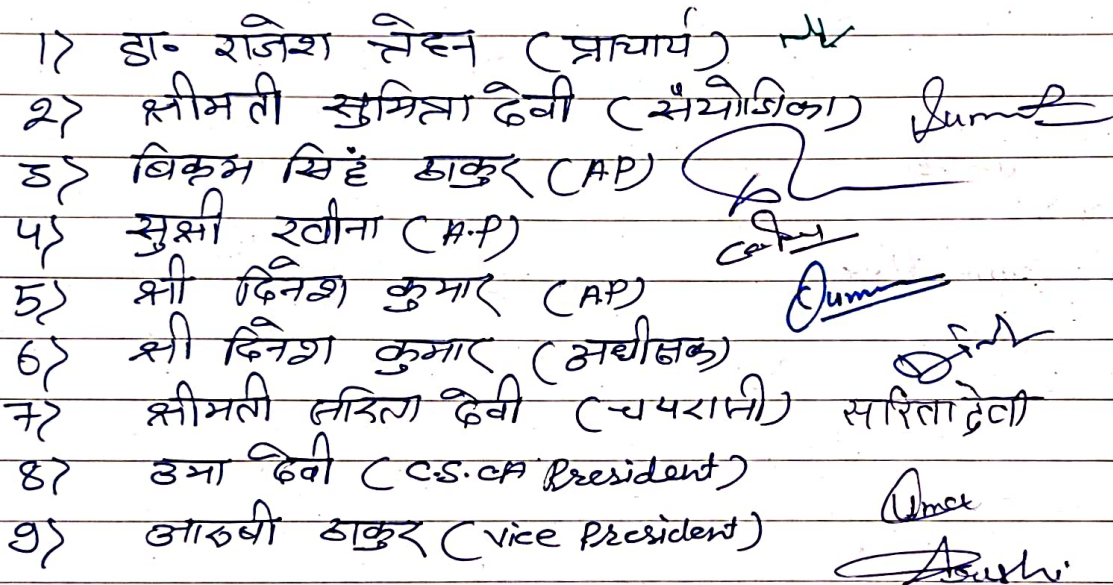 1) डा॰ राजेश नेहन (प्राचार्य)
2) श्रीमती सुमित्रा देवी (संयोजिका)
3) बिक्रम सिंह ठाकुर (AP)
4) सुश्री रवीना (A.P)
5) श्री दिनेश कुमार (AP)
6) श्री दिनेश कुमार (अधीक्षक)
7) श्रीमती सरिता देवी (चपरासी) सरिता देवी
8) उमा देवी (C.S.CA President) Uma
9) आरुषी ठाकुर (Vice President) Aarushi